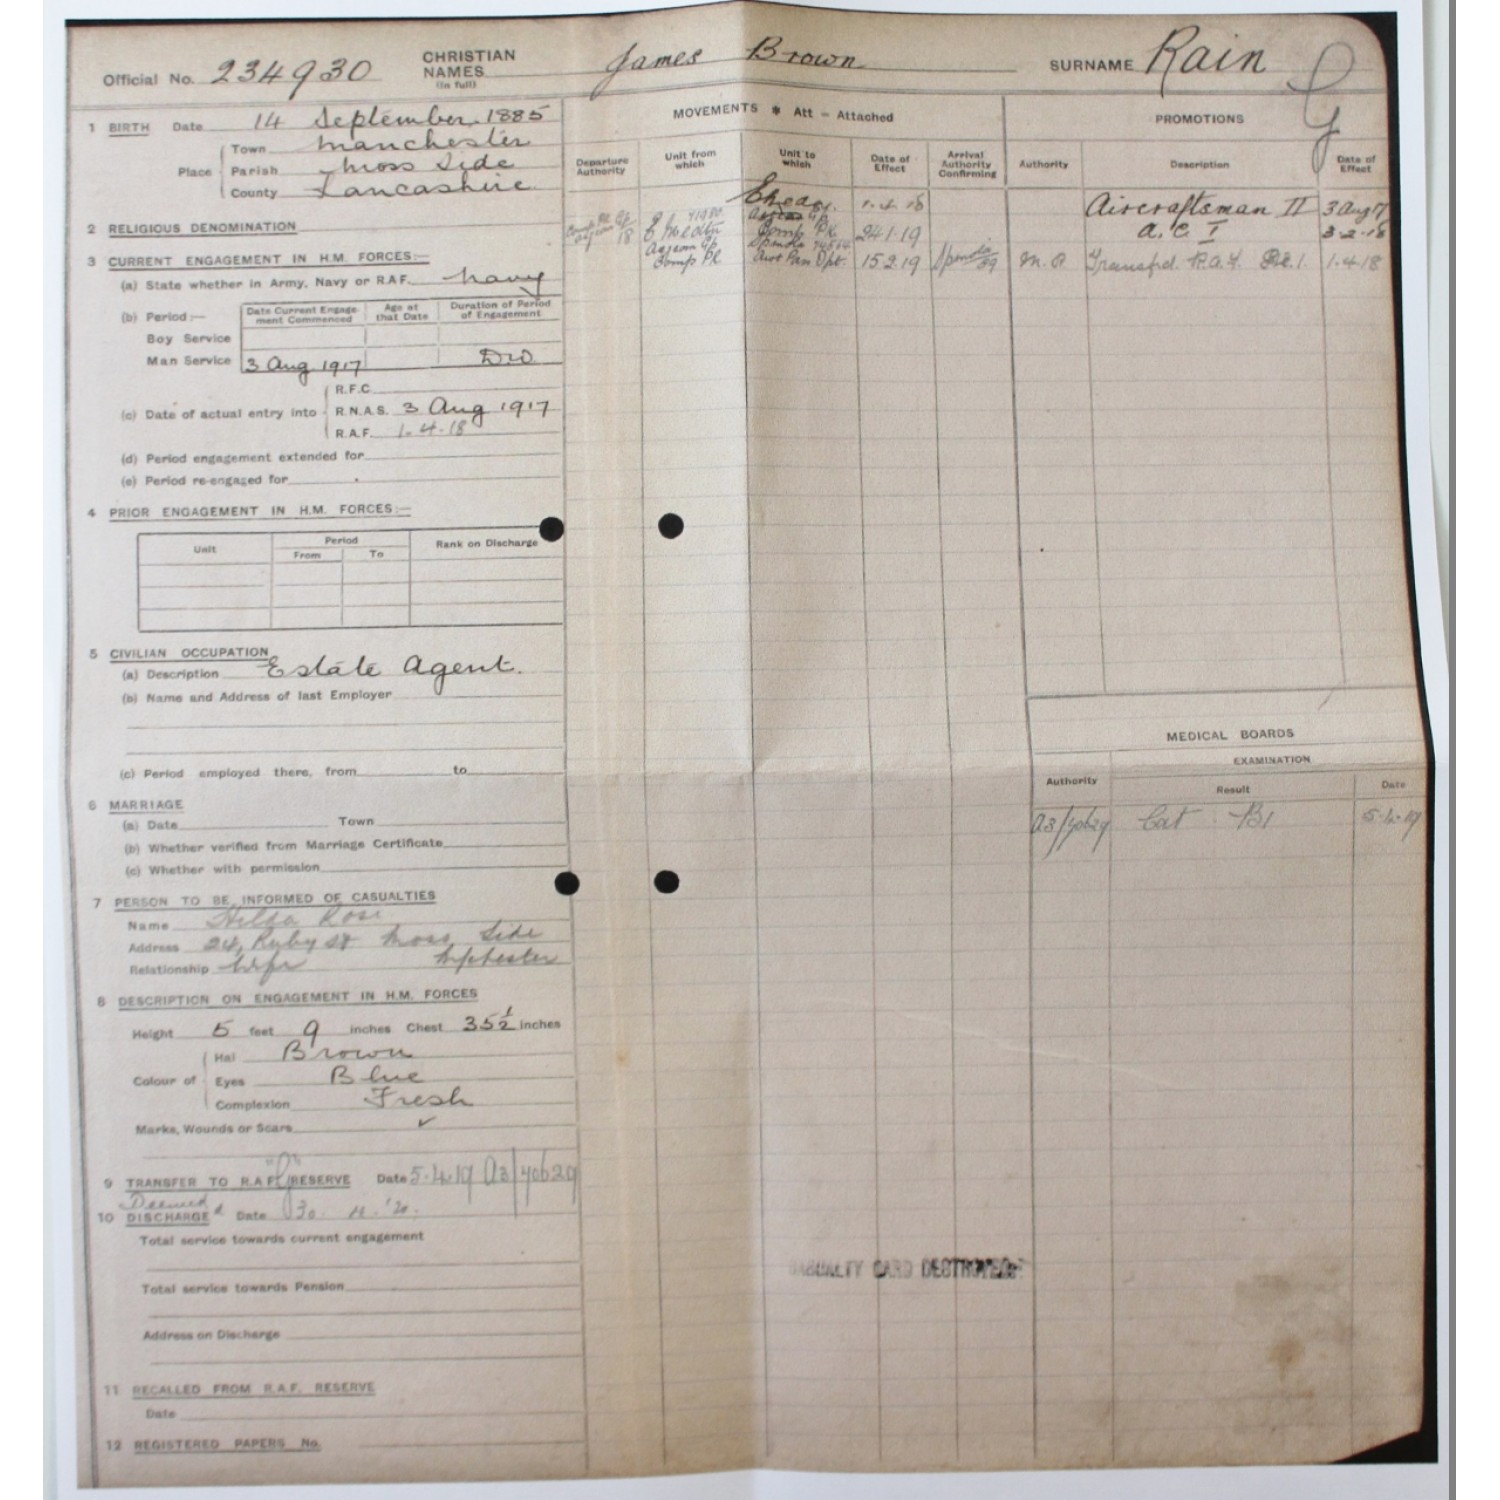 Official No. 234930 CHRISTIAN NAMES (in full) James Brown SURNAME Rain
1 BIRTH Date 14 September 1885
Place Town Manchester
Parish Moss Side
County Lancashire
2 RELIGIOUS DENOMINATION
3 CURRENT ENGAGEMENT IN H.M. FORCES:—
(a) State whether in Army, Navy or R.A.F. Navy
(b) Period:—
Date Current Engagement Commenced Age at that Date Duration of Period of Engagement
Boy Service
Man Service 3 Aug 1917 DW
(c) Date of actual entry into
R.F.C.
R.N.A.S. 3 Aug 1917
R.A.F. 1.4.18
(d) Period engagement extended for
(e) Period re-engaged for
4 PRIOR ENGAGEMENT IN H.M. FORCES:—
Unit Period Rank on Discharge
From To
5 CIVILIAN OCCUPATION
(a) Description Estate Agent.
(b) Name and Address of last Employer
(c) Period employed there, from to
6 MARRIAGE
(a) Date Town
(b) Whether verified from Marriage Certificate
(c) Whether with permission
7 PERSON TO BE INFORMED OF CASUALTIES
Name Hilda Rose
Address 24, Ruby St Moss Side
Relationship Wife
8 DESCRIPTION ON ENGAGEMENT IN H.M. FORCES
Height 5 feet 9 inches Chest 35½ inches
Colour of Hai Brown
Eyes Blue
Complexion Fresh
Marks, Wounds or Scars
9 TRANSFER TO R.A.F. "G" RESERVE Date 5.4.19 A3/40629
Deemed
10 DISCHARGEd Date 30. 4. '20.
Total service towards current engagement
Total service towards Pension
Address on Discharge
11 RECALLED FROM R.A.F. RESERVE
Date
12 REGISTERED PAPERS No.
MOVEMENTS * Att — Attached
Departure Authority Unit from which Unit to which Date of Effect Arrival Authority Confirming
1.4.18
24.1.19
15.2.19
CASUALTY CARD DESTROYED
G
PROMOTIONS
Authority Description Date of Effect
Aircraftsman II 3 Aug 17
A.C I 3.2.18
Transfd. R.A.F. 1.4.18
MEDICAL BOARDS
EXAMINATION
Authority Result Date
A3/40629 Cat B1 5.4.19